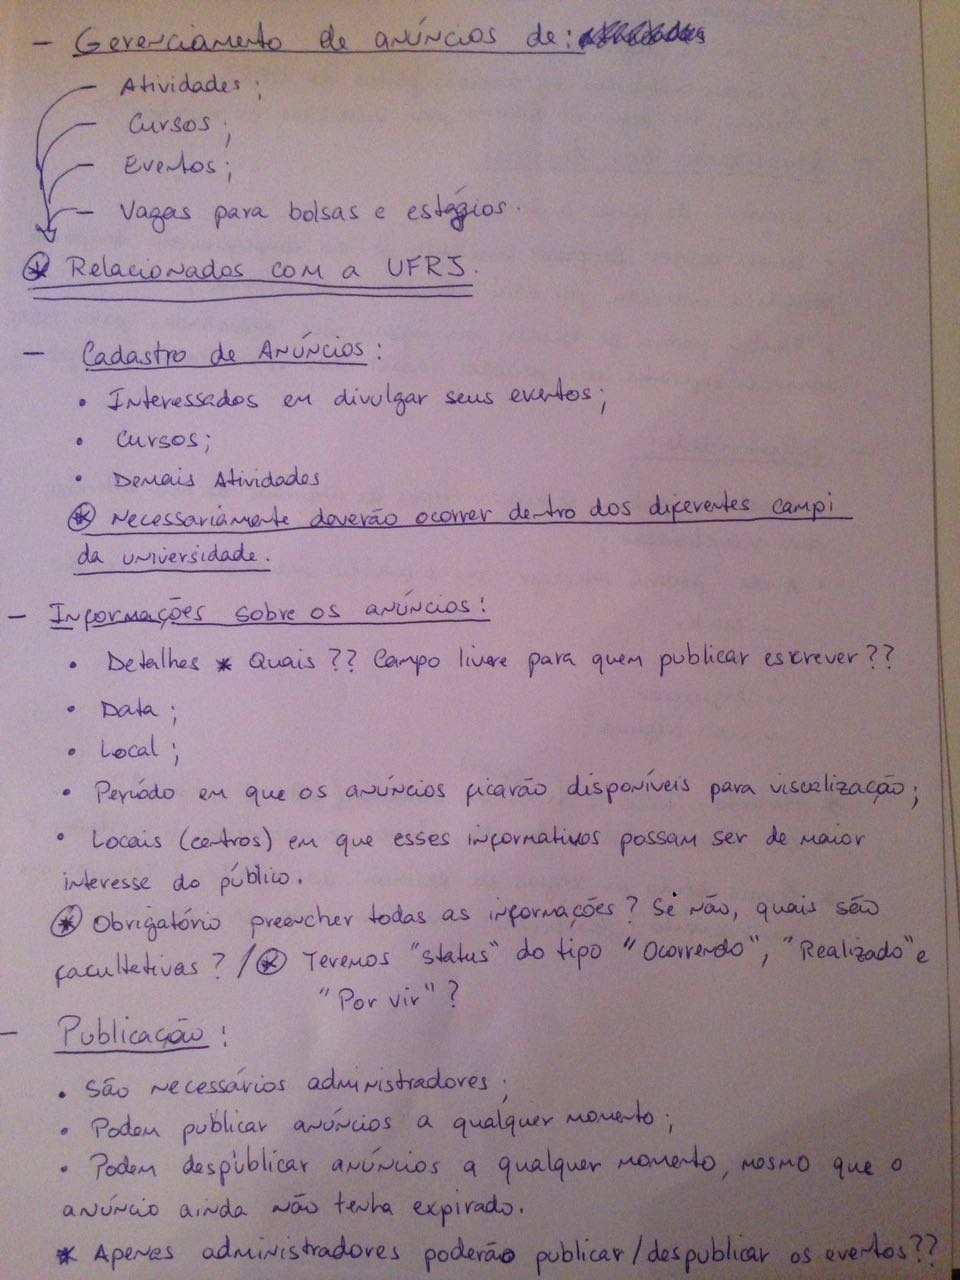 - Gerenciamento de anúncios de:
- Atividades;
- Cursos;
- Eventos;
- Vagas para bolsas e estágios.
* Relacionados com a UFRJ.
- Cadastro de Anúncios:
• Interessados em divulgar seus eventos;
• Cursos;
• Demais Atividades
* Necessariamente deverão ocorrer dentro dos diferentes campi
da universidade.
- Informações sobre os anúncios:
• Detalhes * Quais ?? Campo livre para quem publicar escrever??
• Data;
• Local;
• Período em que os anúncios ficarão disponíveis para visualização;
• Locais (centros) em que esses informativos possam ser de maior
interesse do público.
* Obrigatório preencher todas as informações? Se não, quais são
facultativas? / * Teremos "status" do tipo "Ocorrendo", "Realizado" e
"Por vir"?
- Publicação:
• São necessários administradores;
• Podem publicar anúncios a qualquer momento;
• Podem despublicar anúncios a qualquer momento, mesmo que o
anúncio ainda não tenha expirado.
* Apenas administradores poderão publicar/despublicar os eventos??